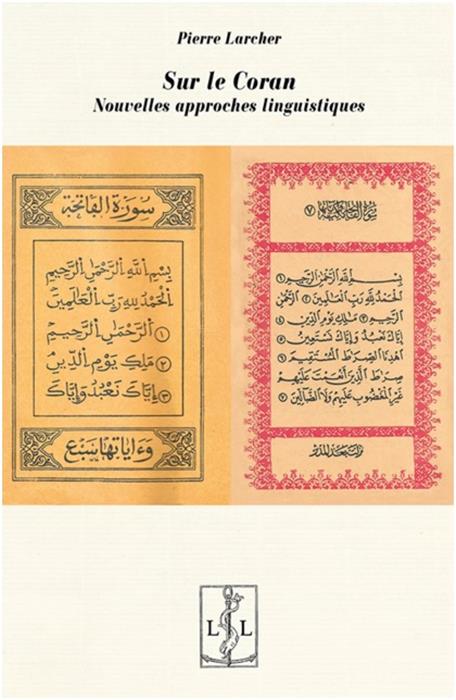 Pierre Larcher
Sur le Coran
Nouvelles approches linguistiques
سُورَةُ الْفَاتِحَةِ
بِسْمِ اللهِ الرَّحْمٰنِ الرَّحِيمِ
الْحَمْدُ لِلهِ رَبِّ الْعَالَمِينَ
١ الرَّحْمٰنِ الرَّحِيمِ
٢ مَلِكِ يَوْمِ الدِّينِ
٣ إِيَّاكَ نَعْبُدُ وَإِيَّاكَ
وَءَايَاتُهَا سَبْعٌ
سُورَةُ
٧
بِسْمِ اللهِ الرَّحْمٰنِ الرَّحِيمِ ١
الْحَمْدُ لِلهِ رَبِّ الْعَالَمِينَ ٢ الرَّحْمٰنِ
الرَّحِيمِ ٣ مَالِكِ يَوْمِ الدِّينِ ٤
إِيَّاكَ نَعْبُدُ وَإِيَّاكَ نَسْتَعِينُ ٥
اهْدِنَا الصِّرَاطَ الْمُسْتَقِيمَ ٦
صِرَاطَ الَّذِينَ أَنْعَمْتَ عَلَيْهِمْ
غَيْرِ الْمَغْضُوبِ عَلَيْهِمْ وَلَا الضَّالِّينَ ٧
نزلت بعد المدثر
L L